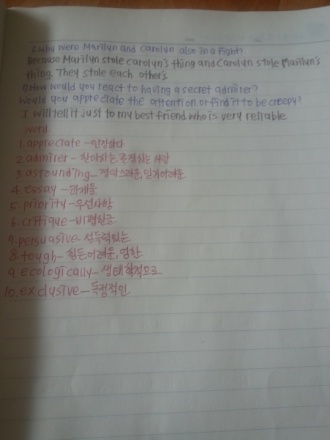 2. Why were Marilyn and Carolyn also in a fight?
Because Marilyn stole carolyn's thing and Carolyn stole Marilyn's
thing. They stole each other's
How would you react to having a secret admirer?
Would you appreciate the attention or find it to be creepy?
I will tell it just to my best friend who is very reliable
word
1. appreciate - 인정하다
2. admirer - 찬미하는, 구혼하는 사람
3. astounding - 경악스러운, 믿기어려운
4. essay - 과제물
5. priority - 우선사항
6. critique - 비평한글
7. persuasive - 설득력있는
8. tough - 힘든어려운, 엄한
9. ecologically - 생태학적으로
10. exclusive - 독점적인